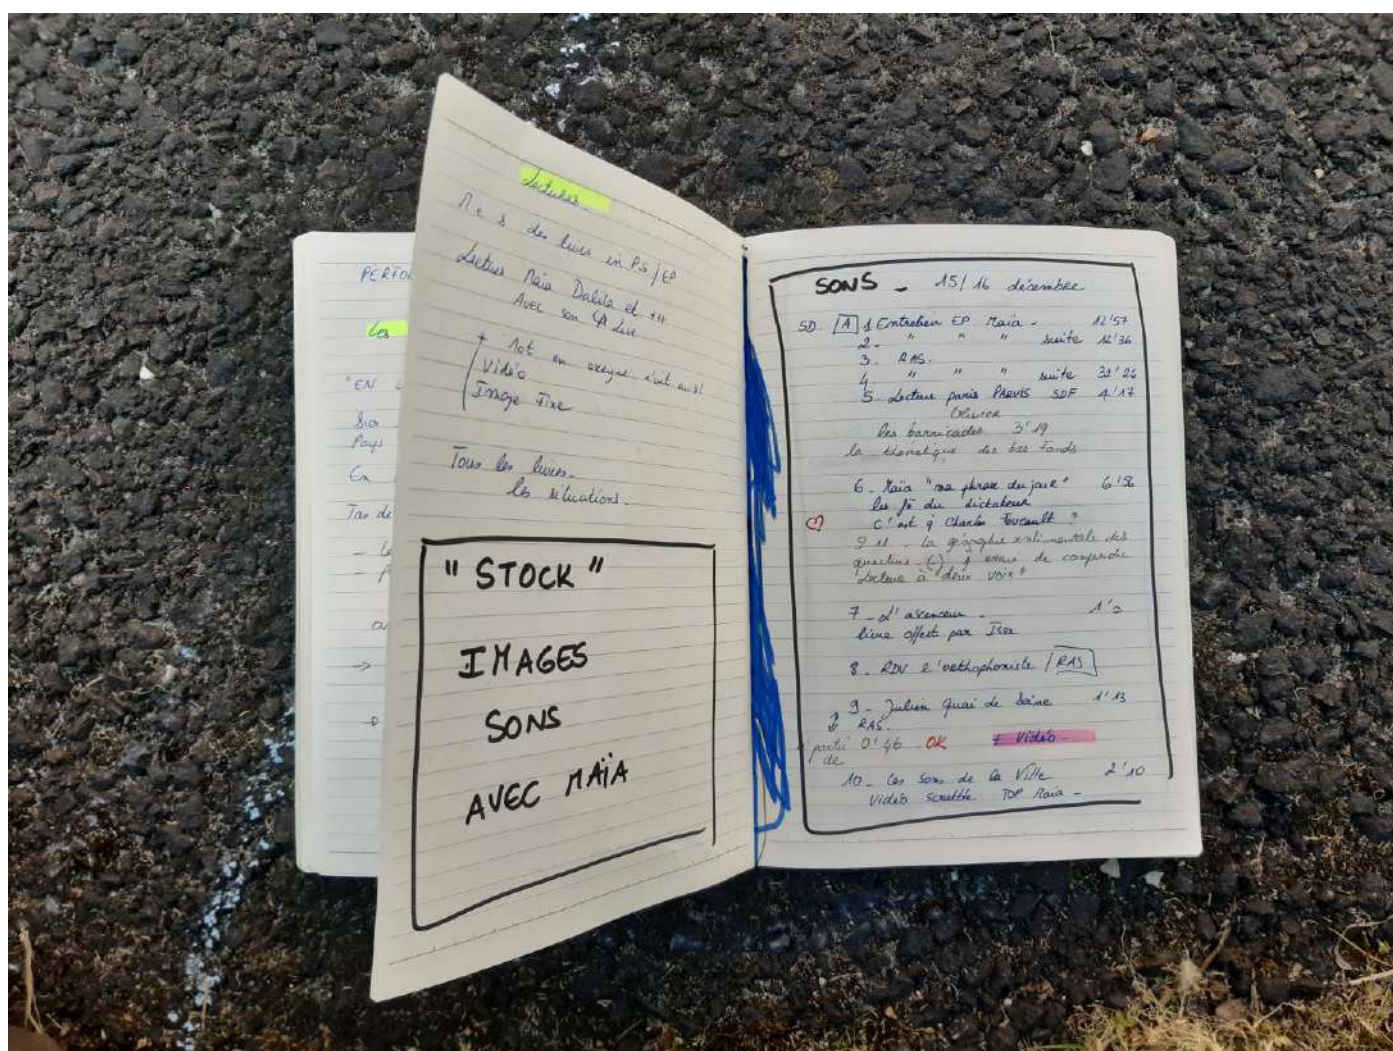 PERFO
Les
"EN
Sur
Pays
En
Tas de
Lectures -
des livres en PS/EP
Lecture Maïa Dalila et ++
Avec son Live
+ Mot en exergue écrit aussi
Vidéo
Image Fixe
Tous les livres -
les situations -
"STOCK"
IMAGES
SONS
AVEC MAÏA
SONS - 15/16 décembre
SD. A 1 Entretien EP Maïa - 12'57
2. " " " suite 12'36
3. RAS.
4 " " " suite 32'26
5. Lecture parvis PARVIS SDF 4'17
Olivier
les barricades 3'19
la thématique des bas fonds
6 - Maïa "ma phrase du jour" 6'56
les du dictateur
C'est Charles Foucault ?
la géographie sentimentale des
quartiers (-) de comprendre
Lecture à "deux voix"
7 - L'ascenseur -
livre offert par
8 - RDV l'orthophoniste RAS
9 - Julien Quai de Seine 1'13
RAS.
partie 0'46 OK Vidéo -
de
10 - Les sons de la Ville 2'10
Vidéo TOP Maïa -